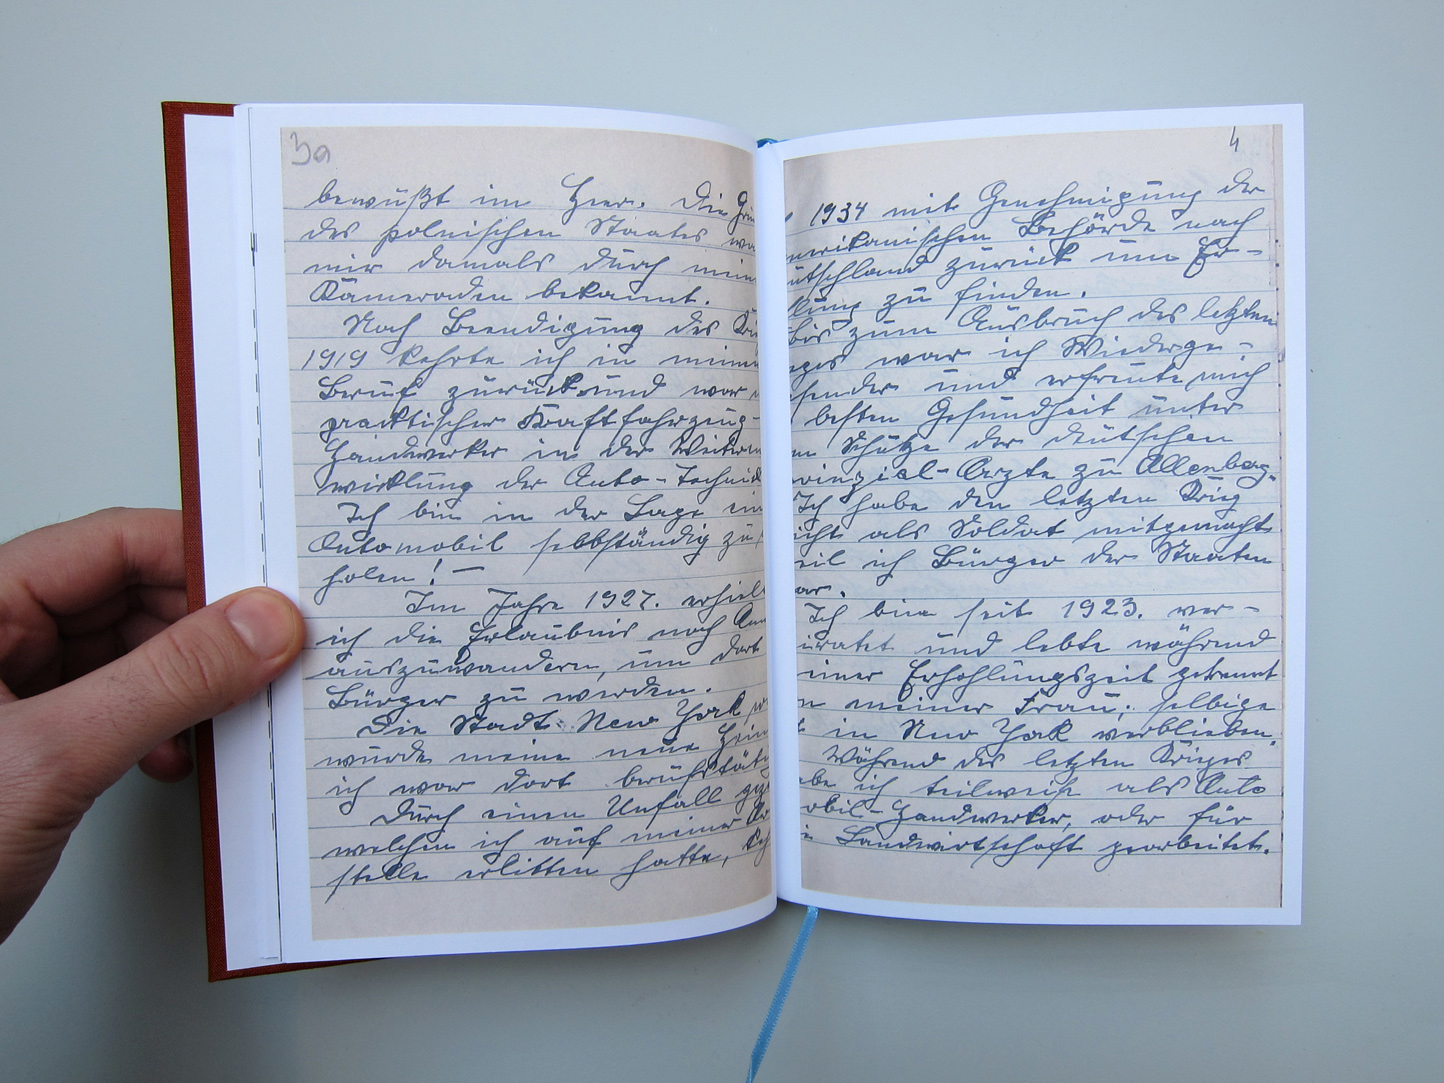 3a
bewußt im Heer. Die
des polnischen Staates
mir damals durch
Kameraden bekannt.
Nach Beendigung des
1919 kehrte ich in
Beruf zurück und war
praktischer Kraftfahrzeug-
Handwerker in der
wicklung der Auto-Technik
Ich bin in der Lage
Automobil selbständig zu
holen! —
Im Jahre 1927. erhielt
ich die Erlaubnis nach
auszuwandern, um dort
Bürger zu werden.
Die Stadt New York
wurde meine neue
ich war dort
Durch einen Unfall
welchen ich auf meiner
stelle erlitten hatte,
4
1934 mit Genehmigung der
Behörde nach
zurück um Er-
zu finden.
bis zum Ausbruch des letzten
war ich Wiederge-
und erfreute mich
besten Gesundheit unter
Schutze der deutschen
Arzte zu Allenberg.
Ich habe den letzten Krieg
als Soldat mitgemacht
ich Bürger der Staaten
Ich bin seit 1923. ver-
und lebte während
Erholungszeit getrennt
meiner Frau; selbige
in New York verblieben.
Während des letzten Krieges
ich teilweise als Auto
Handwerker, oder für
Landwirtschaft gearbeitet.